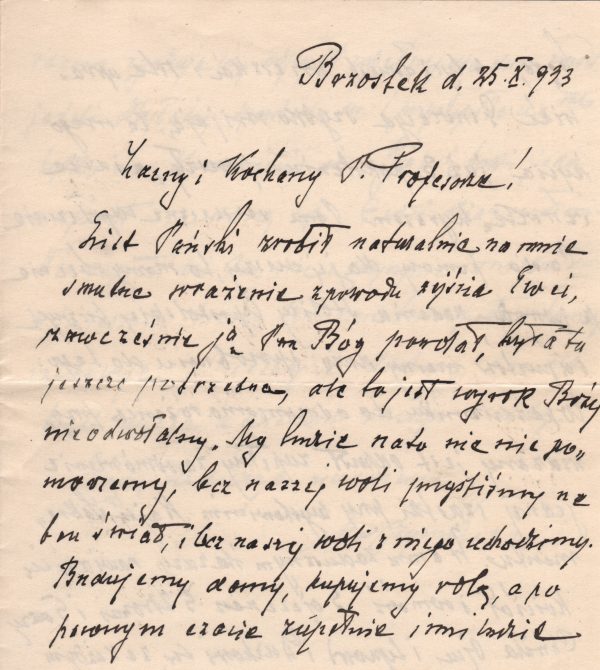 Brzostek d. 25.X.933
Zacny i Kochany P. Profesorze!
List Pański zrobił naturalnie na mnie
smutne wrażenie z powodu zejścia Ewci,
zawcześnie ją Pan Bóg powołał, była tu
jeszcze potrzebna, ale to jest wyrok Boży
nieodwołalny. My ludzie na to nic nie po-
możemy, bez naszej woli przyśliśmy na
ten świat, i bez naszej woli z niego uchodzimy.
Budujemy domy, kupujemy rolę, a po
pewnym czasie zupełnie inni ludzie